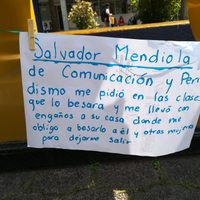 Salvador Mendiola
de Comunicación y Peri
dismo me pidió en las clases
que lo besara y me llevó con
engaños a su casa donde me
obligo a besarlo a él y otras mujeres
para dejarme salir